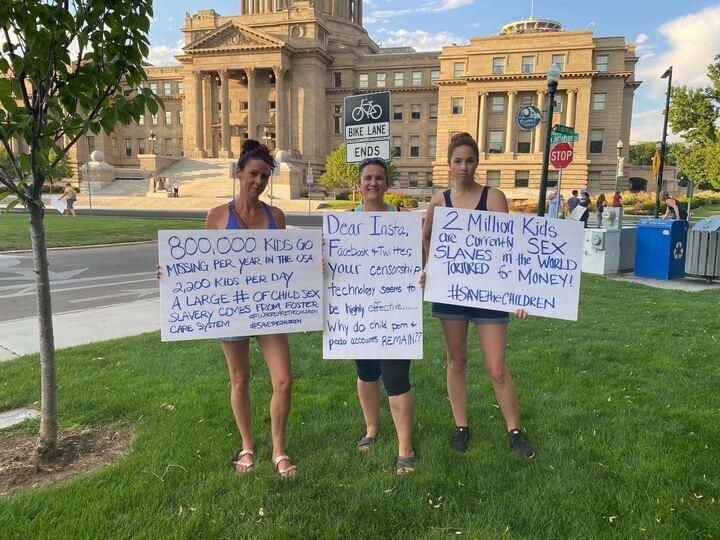 BIKE LANE
ENDS
STOP
800,000 KIDS GO
MISSING PER YEAR IN THE USA
2,200 KIDS PER DAY
A LARGE # OF CHILD SEX
SLAVERY COMES FROM FOSTER
CARE SYSTEM
#SAVETHECHILDREN
Dear Insta,
Facebook & Twitter,
your censorship
technology seems to
be highly effective......
Why do child porn &
pedo accounts REMAIN??
2 Million Kids
are currently SEX
SLAVES in the WORLD
TORTURED for MONEY!
#SAVEtheCHILDREN